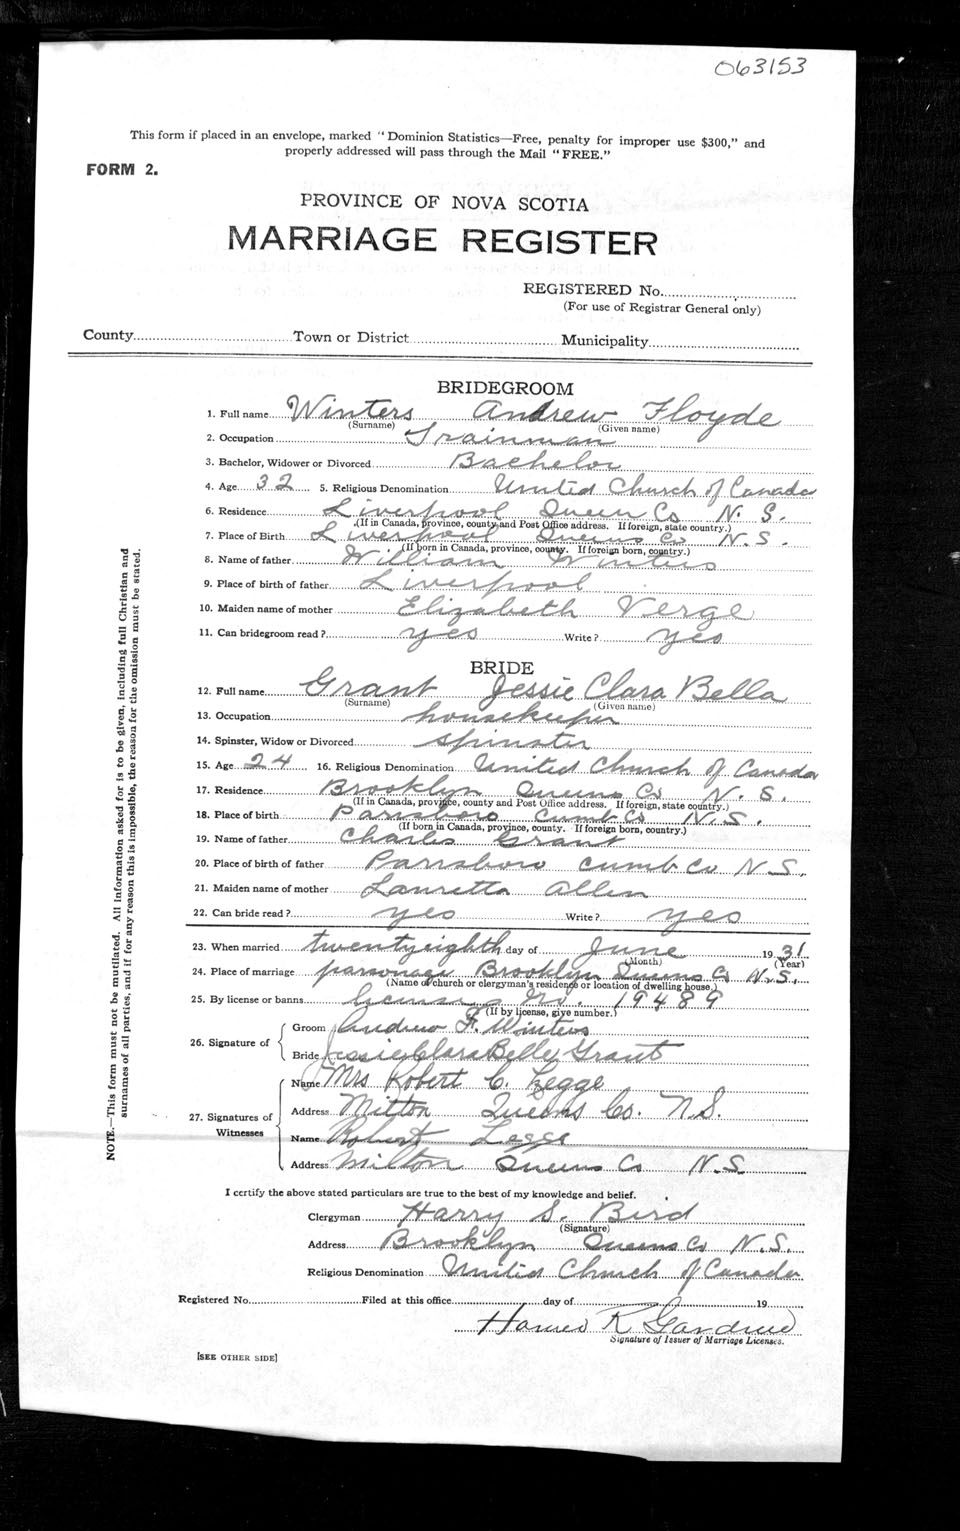 063153
This form if placed in an envelope, marked "Dominion Statistics—Free, penalty for improper use $300," and
properly addressed will pass through the Mail "FREE."
FORM 2.
PROVINCE OF NOVA SCOTIA
MARRIAGE REGISTER
REGISTERED No.
(For use of Registrar General only)
County Town or District Municipality
BRIDEGROOM
1. Full name Winters Andrew Floyde
(Surname) (Given name)
2. Occupation Trainman
3. Bachelor, Widower or Divorced Bachelor
4. Age 32 5. Religious Denomination United Church of Canada
6. Residence Liverpool Queen Co N. S.
(If in Canada, province, county and Post Office address. If foreign, state country.)
7. Place of Birth Liverpool Queens Co N.S.
(If born in Canada, province, county. If foreign born, country.)
8. Name of father William Winters
9. Place of birth of father Liverpool
10. Maiden name of mother Elizabeth Verge
11. Can bridegroom read? yes Write? yes
BRIDE
12. Full name Grant Jessie Clara Bella
(Surname) (Given name)
13. Occupation housekeeper
14. Spinster, Widow or Divorced spinster
15. Age 24 16. Religious Denomination United Church of Canada
17. Residence Brooklyn Queens Co N. S.
(If in Canada, province, county and Post Office address. If foreign, state country.)
18. Place of birth Parrsboro Cumb Co N.S.
(If born in Canada, province, county. If foreign born, country.)
19. Name of father Charles Grant
20. Place of birth of father Parrsboro Cumb Co N.S.
21. Maiden name of mother Lauretta Allen
22. Can bride read? yes Write? yes
23. When married twentyeighth day of June 1931
(Month) (Year)
24. Place of marriage parsonage Brooklyn Queens Co N.S.
(Name of church or clergyman's residence or location of dwelling house.)
25. By license or banns license No. 19489
(If by license, give number.)
26. Signature of
Groom Andrew F. Winters
Bride Jessie Clara Belle Grant
27. Signatures of Witnesses
Name Mrs Robert C. Legge
Address Milton Queens Co. N.S.
Name Robert Legge
Address Milton Queens Co N.S.
I certify the above stated particulars are true to the best of my knowledge and belief.
Clergyman Harry S. Bird
(Signature)
Address Brooklyn Queens Co N.S.
Religious Denomination United Church of Canada
Registered No. Filed at this office day of 19
K. Gardner
Signature of Issuer of Marriage Licenses.
[SEE OTHER SIDE]
NOTE.—This form must not be mutilated. All Information asked for is to be given, including full Christian and
surnames of all parties, and if for any reason this is impossible, the reason for the omission must be stated.